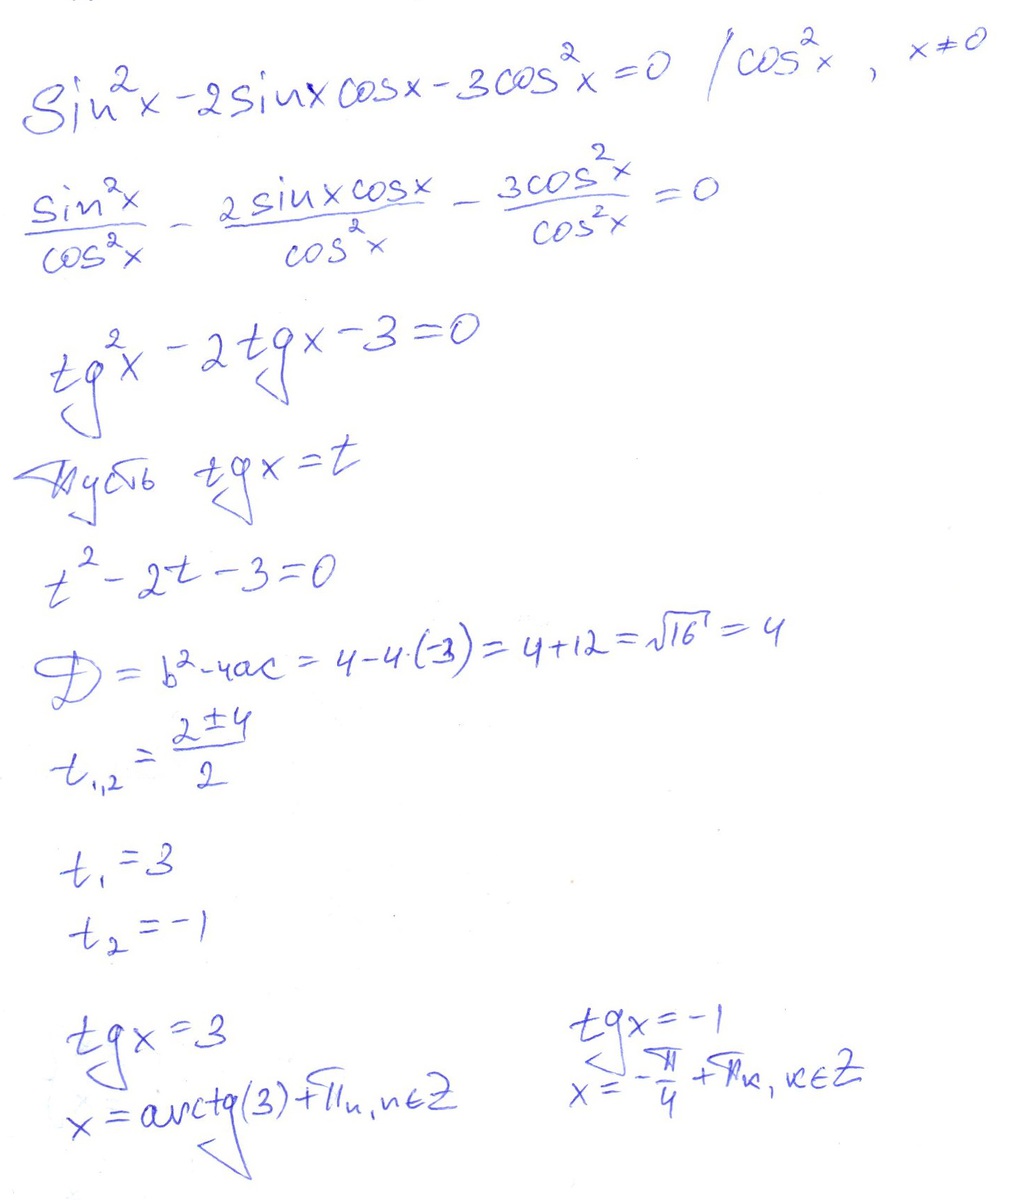 Sin²x - 2sinx cosx - 3cos²x = 0 / cos²x, x ≠ 0
sin²x/cos²x - 2sinx cosx/cos²x - 3cos²x/cos²x = 0
tg²x - 2tgx - 3 = 0
Пусть tgx = t
t² - 2t - 3 = 0
D = b² - 4ac = 4 - 4·(-3) = 4 + 12 = √16 = 4
t₁,₂ = (2 ± 4)/2
t₁ = 3
t₂ = -1
tgx = 3
x = arctg(3) + πn, n ∈ Z
tgx = -1
x = -π/4 + πk, k ∈ Z